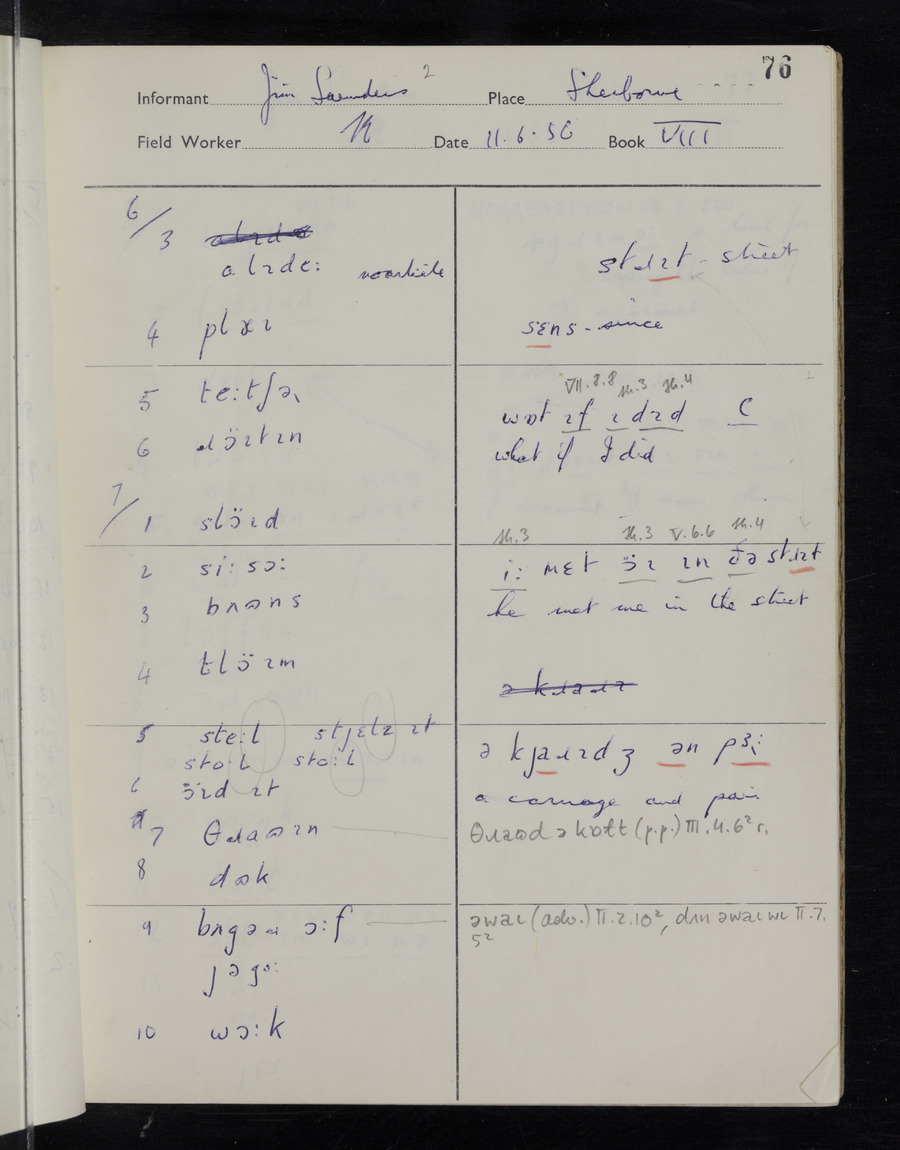 76
Informant Jim Saunders 2 Place Sherborne
Field Worker Date 11.6.56 Book VIII
6/
3
ɑlɪdɛ: stɹɪt - street
4 plaɪ sɛns - since
5 te:tʃə VII.8.8 sh.3 sh.4
wɒt ɪf ɪ dɪd C
6 ɹɔ̈ɪtɪn what if I did
7/
1 slɔ̈ɪd
sh.3 sh.3 V.6.6 sh.4
2 si:sɔ: i: mɛt ɔ̈ɪ ɪn ðə stɹɪt
3 bʌɷns he met me in the street
4 tlɔ̈ɪm
5 ste:l stjɛlɪ ɪt ə kjaɹɪdʒ ən pɜ:
stɔ:l stɔ:l
6 ɔ̈ɪd ɪt a carriage and pair
7 θɹaɷɪn θɹaɷd ə kɒlt (p.p.) III.4.6² r.
8 dɷk
9 bʌgəɹ ɔ:f əwaɩ (adv.) II.2.10², dɪn əwaɩ wɩ II.7.
5²
jə go:
10 wɔ:k